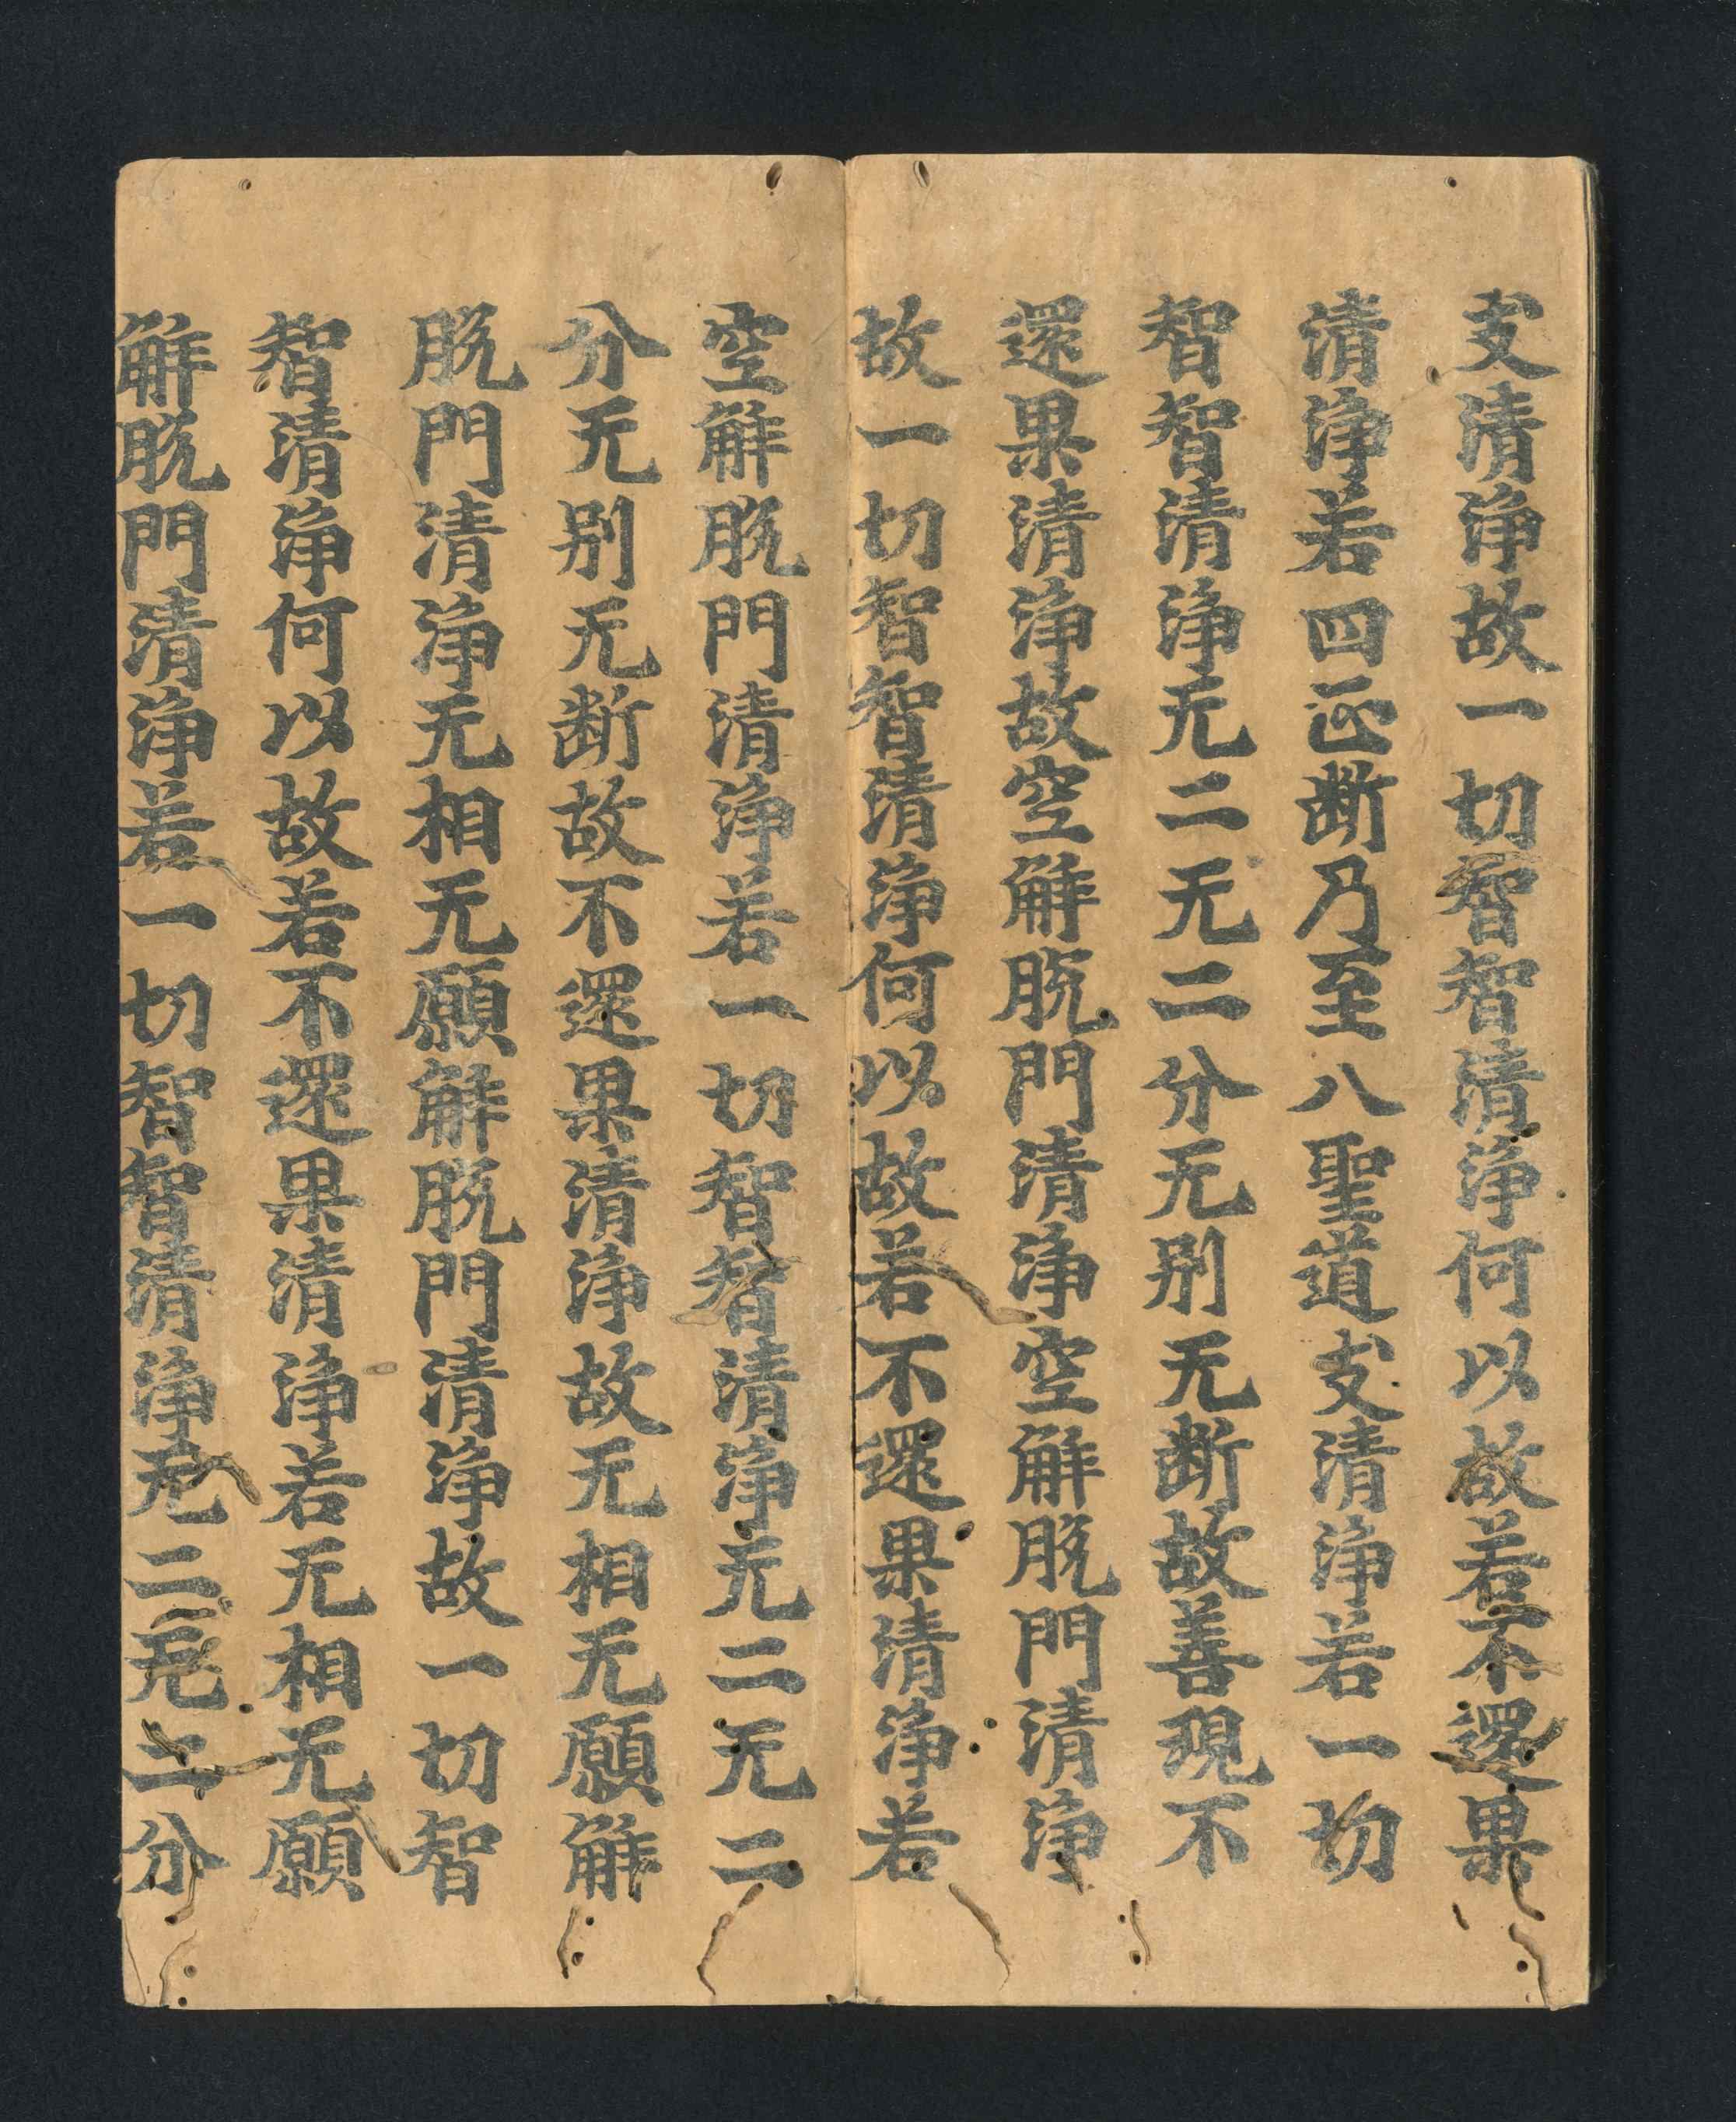 支清淨故一切智智清淨何以故若不還果
清淨若四正斷乃至八聖道支清淨若一切
智智清淨无二无二分无別无斷故善現不
還果清淨故空解脫門清淨空解脫門清淨
故一切智智清淨何以故若不還果清淨若
空解脫門清淨若一切智智清淨无二无二
分无別无斷故不還果清淨故无相无願解
脫門清淨无相无願解脫門清淨故一切智
智清淨何以故若不還果清淨若无相无願
解脫門清淨若一切智智清淨无二无二分